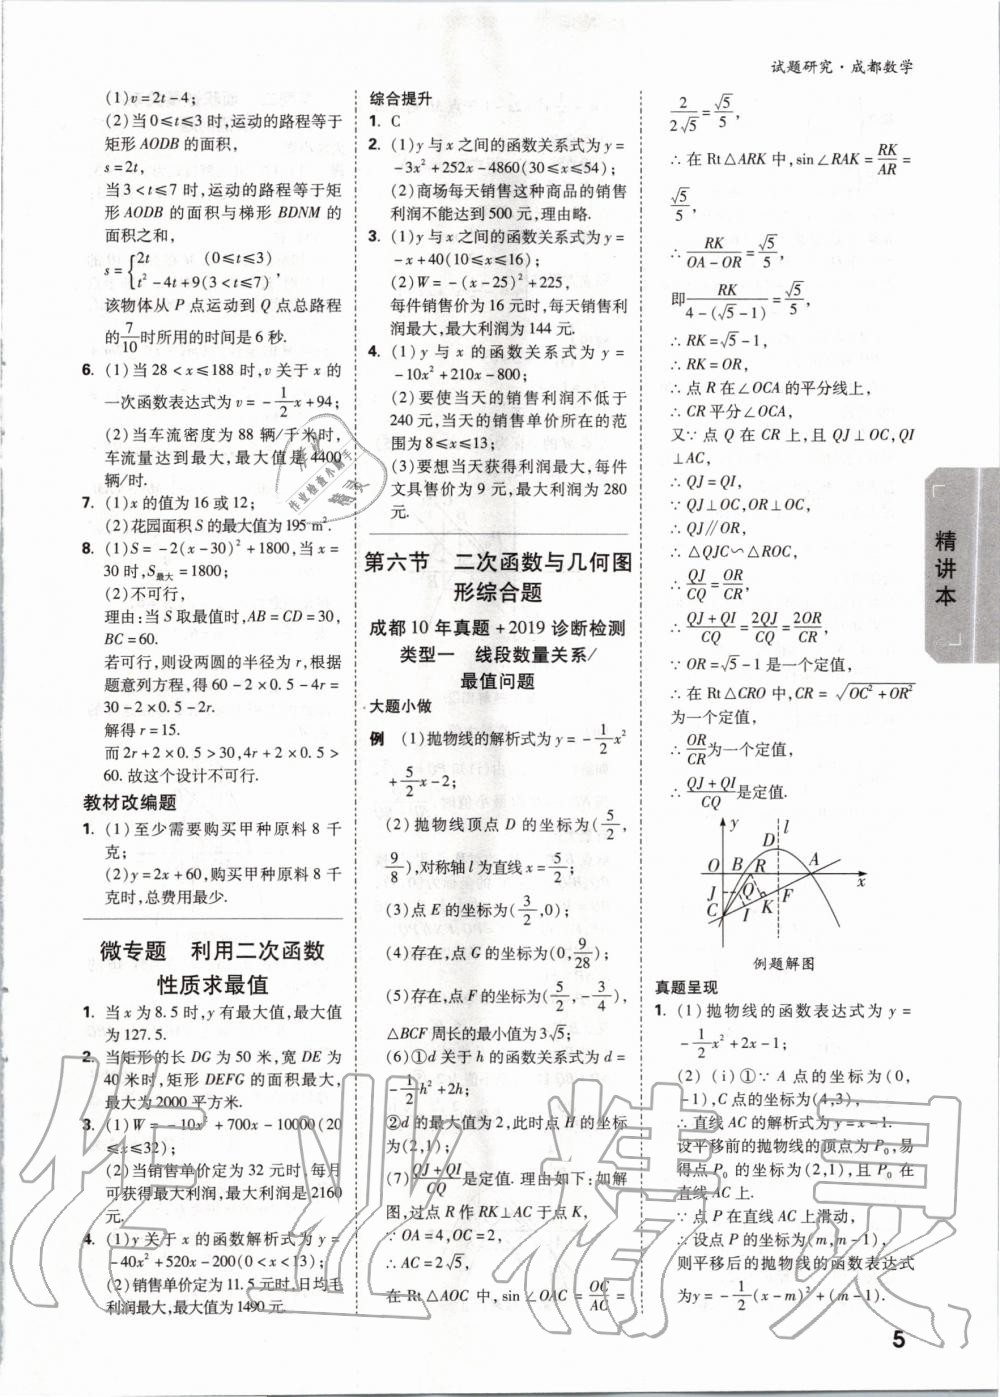 试题研究·成都数学
(1)v=2t-4;
(2)当0≤t≤3时,运动的路程等于
矩形AODB的面积,
s=2t,
当3<t≤7时,运动的路程等于矩
形AODB的面积与梯形BDNM的
面积之和,
s={2t (0≤t≤3)
t²-4t+9(3<t≤7),
该物体从P点运动到Q点总路程
的7/10时所用的时间是6秒.
6. (1)当28<x≤188时,v关于x的
一次函数表达式为v=-1/2x+94;
(2)当车流密度为88辆/千米时,
车流量达到最大,最大值是4400
辆/时.
7. (1)x的值为16或12;
(2)花园面积S的最大值为195 m².
8. (1)S=-2(x-30)²+1800,当x=
30时,S最大=1800;
(2)不可行,
理由:当S取最值时,AB=CD=30,
BC=60.
若可行,则设两圆的半径为r,根据
题意列方程,得60-2×0.5-4r=
30-2×0.5-2r.
解得r=15.
而2r+2×0.5>30,4r+2×0.5>
60.故这个设计不可行.
教材改编题
1. (1)至少需要购买甲种原料8千
克;
(2)y=2x+60,购买甲种原料8千
克时,总费用最少.
微专题 利用二次函数
性质求最值
1. 当x为8.5时,y有最大值,最大值
为127.5.
2. 当矩形的长DG为50米,宽DE为
40米时,矩形DEFG的面积最大,
最大为2000平方米.
3. (1)W=-10x²+700x-10000(20
≤x≤32);
(2)当销售单价定为32元时,每月
可获得最大利润,最大利润是2160
元.
4. (1)y关于x的函数解析式为y=
-40x²+520x-200(0<x<13);
(2)销售单价定为11.5元时,日均毛
利润最大,最大值为1490元.
综合提升
1. C
2. (1)y与x之间的函数关系式为y=
-3x²+252x-4860(30≤x≤54);
(2)商场每天销售这种商品的销售
利润不能达到500元,理由略.
3. (1)y与x之间的函数关系式为y=
-x+40(10≤x≤16);
(2)W=-(x-25)²+225,
每件销售价为16元时,每天销售利
润最大,最大利润为144元.
4. (1)y与x的函数关系式为y=
-10x²+210x-800;
(2)要使当天的销售利润不低于
240元,当天的销售单价所在的范
围为8≤x≤13;
(3)要想当天获得利润最大,每件
文具售价为9元,最大利润为280
元.
第六节 二次函数与几何图
形综合题
成都10年真题+2019诊断检测
类型一 线段数量关系/
最值问题
大题小做
例 (1)抛物线的解析式为y=-1/2x²
+5/2x-2;
(2)抛物线顶点D的坐标为(5/2,
9/8),对称轴l为直线x=5/2;
(3)点E的坐标为(3/2,0);
(4)存在,点G的坐标为(0,9/28);
(5)存在,点F的坐标为(5/2,-3/4),
△BCF周长的最小值为3√5;
(6)①d关于h的函数关系式为d=
-1/2h²+2h;
②d的最大值为2,此时点H的坐标
为(2,1);
(7)(QJ+QI)/CQ是定值.理由如下:如解
图,过点R作RK⊥AC于点K,
∵OA=4,OC=2,
∴AC=2√5,
在Rt△AOC中,sin∠OAC=OC/AC=
2/(2√5)=√5/5,
∴在Rt△ARK中,sin∠RAK=RK/AR=
√5/5,
∴RK/(OA-OR)=√5/5,
即RK/(4-(√5-1))=√5/5,
∴RK=√5-1,
∴RK=OR,
∴点R在∠OCA的平分线上,
∴CR平分∠OCA,
又∵点Q在CR上,且QJ⊥OC,QI
⊥AC,
∴QJ=QI,
∵QJ⊥OC,OR⊥OC,
∴QJ∥OR,
∴△QJC∽△ROC,
∴QJ/CQ=OR/CR,
∴(QJ+QI)/CQ=2QJ/CQ=2OR/CR,
∵OR=√5-1是一个定值,
∴在Rt△CRO中,CR=√(OC²+OR²)
为一个定值,
∴OR/CR为一个定值,
∴(QJ+QI)/CQ是定值.
y l
D
O B R A x
J Q F
C I K
例题解图
真题呈现
1. (1)抛物线的函数表达式为y=
-1/2x²+2x-1;
(2)(i)①∵A点的坐标为(0,
-1),C点的坐标为(4,3),
∴直线AC的解析式为y=x-1.
设平移前的抛物线的顶点为P₀,易
得点P₀的坐标为(2,1),且P₀在
直线AC上.
∵点P在直线AC上滑动,
∴设点P的坐标为(m,m-1),
则平移后的抛物线的函数表达式
为y=-1/2(x-m)²+(m-1).
精讲本
5
作业精灵